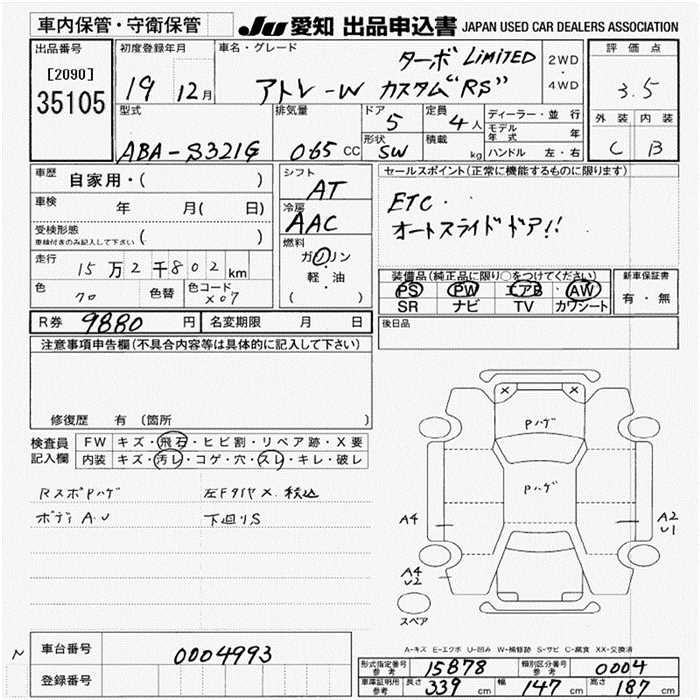 車内保管・守衛保管 JU 愛知 出品申込書 JAPAN USED CAR DEALERS ASSOCIATION
出品番号 初度登録年月 車名・グレード ターボ LIMITED 2WD・4WD 評価点
[2090] 19 12月 アトレ-W カスタム"RS" 3.5
35105 型式 排気量 ドア 5 定員 4人 ディーラー・並行 外装 内装
モデル年式 年
ABA-S321G 065 CC 形状 SW 積載 kg ハンドル 左・右 C B
車歴 自家用・( ) シフト AT セールスポイント(正常に機能するものに限ります)
車検 年 月( 日) 冷房 AAC ETC・
受検形態 ( ) オートスライドドア!!
車検付きのみ記入して下さい
燃料 ガソリン・軽・油 ( )
走行 15万2千802km
装備品(純正品に限り○をつけてください) 新車保証書
色 クロ 色替 色コード X07 PS PW エアB AW 有・無
SR ナビ TV カワシート
R券 9880円 名変期限 月 日 後日品
注意事項申告欄(不具合内容等は具体的に記入して下さい)
修復歴 有 (箇所 )
検査員記入欄 FW キズ・飛石・ヒビ割・リペア跡・X要
内装 キズ・汚レ・コゲ・穴・スレ・キレ・破レ
RスポPハゲ 左Fタイヤ X. 税込
ボディ A.U 下回りS
X X
Pハゲ
Pハゲ
A4 A2
U1
A4
U2
スペア
A-キズ E-エクボ U-凹み W-補修跡 S-サビ C-腐食 XX-交換済
N 車台番号 0004993
登録番号
型式指定番号 参考 15878 類別区分番号 参考 0004
車庫証明用 参考 長さ 339 cm 幅 147 cm 高さ 187 cm